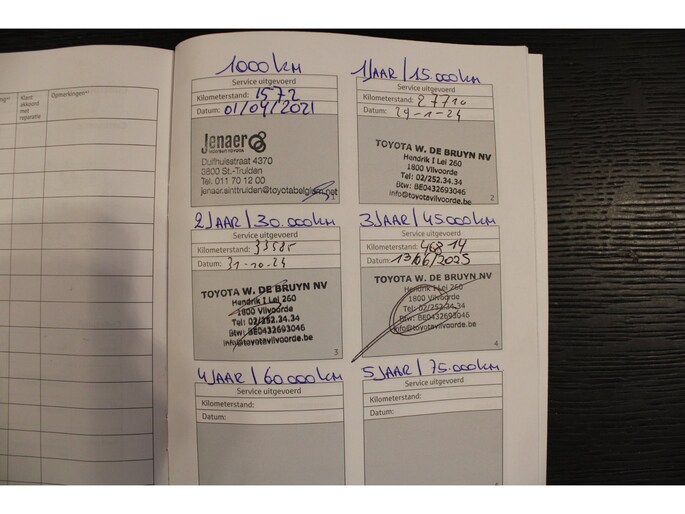 Klant
akkoord
met
reparatie
Opmerkingen
1000 KM
Service uitgevoerd
Kilometerstand: 1572
Datum: 01/04/2021
Jenaer
Duifhuisstraat 4370
3800 St.-Truiden
Tel. 011 70 12 00
jenaer.sinttruiden@toyotabelgium.net
1 JAAR / 15.000 KM
Service uitgevoerd
Kilometerstand: 27710
Datum: 29-1-24
TOYOTA W. DE BRUYN NV
Hendrik I Lei 260
1800 Vilvoorde
Tel: 02/252.34.34
Btw: BE0432693046
info@toyotavilvoorde.be
2
2 JAAR / 30.000 KM
Service uitgevoerd
Kilometerstand: 33585
Datum: 31-10-24
TOYOTA W. DE BRUYN NV
Hendrik I Lei 260
1800 Vilvoorde
Tel: 02/252.34.34
Btw: BE0432693046
info@toyotavilvoorde.be
3
3 JAAR / 45.000 KM
Service uitgevoerd
Kilometerstand: 46814
Datum: 13/06/2025
TOYOTA W. DE BRUYN NV
Hendrik I Lei 260
1800 Vilvoorde
Tel: 02/252.34.34
Btw: BE0432693046
info@toyotavilvoorde.be
4
4 JAAR / 60.000 KM
Service uitgevoerd
Kilometerstand:
Datum:
5 JAAR / 75.000 KM
Service uitgevoerd
Kilometerstand:
Datum: